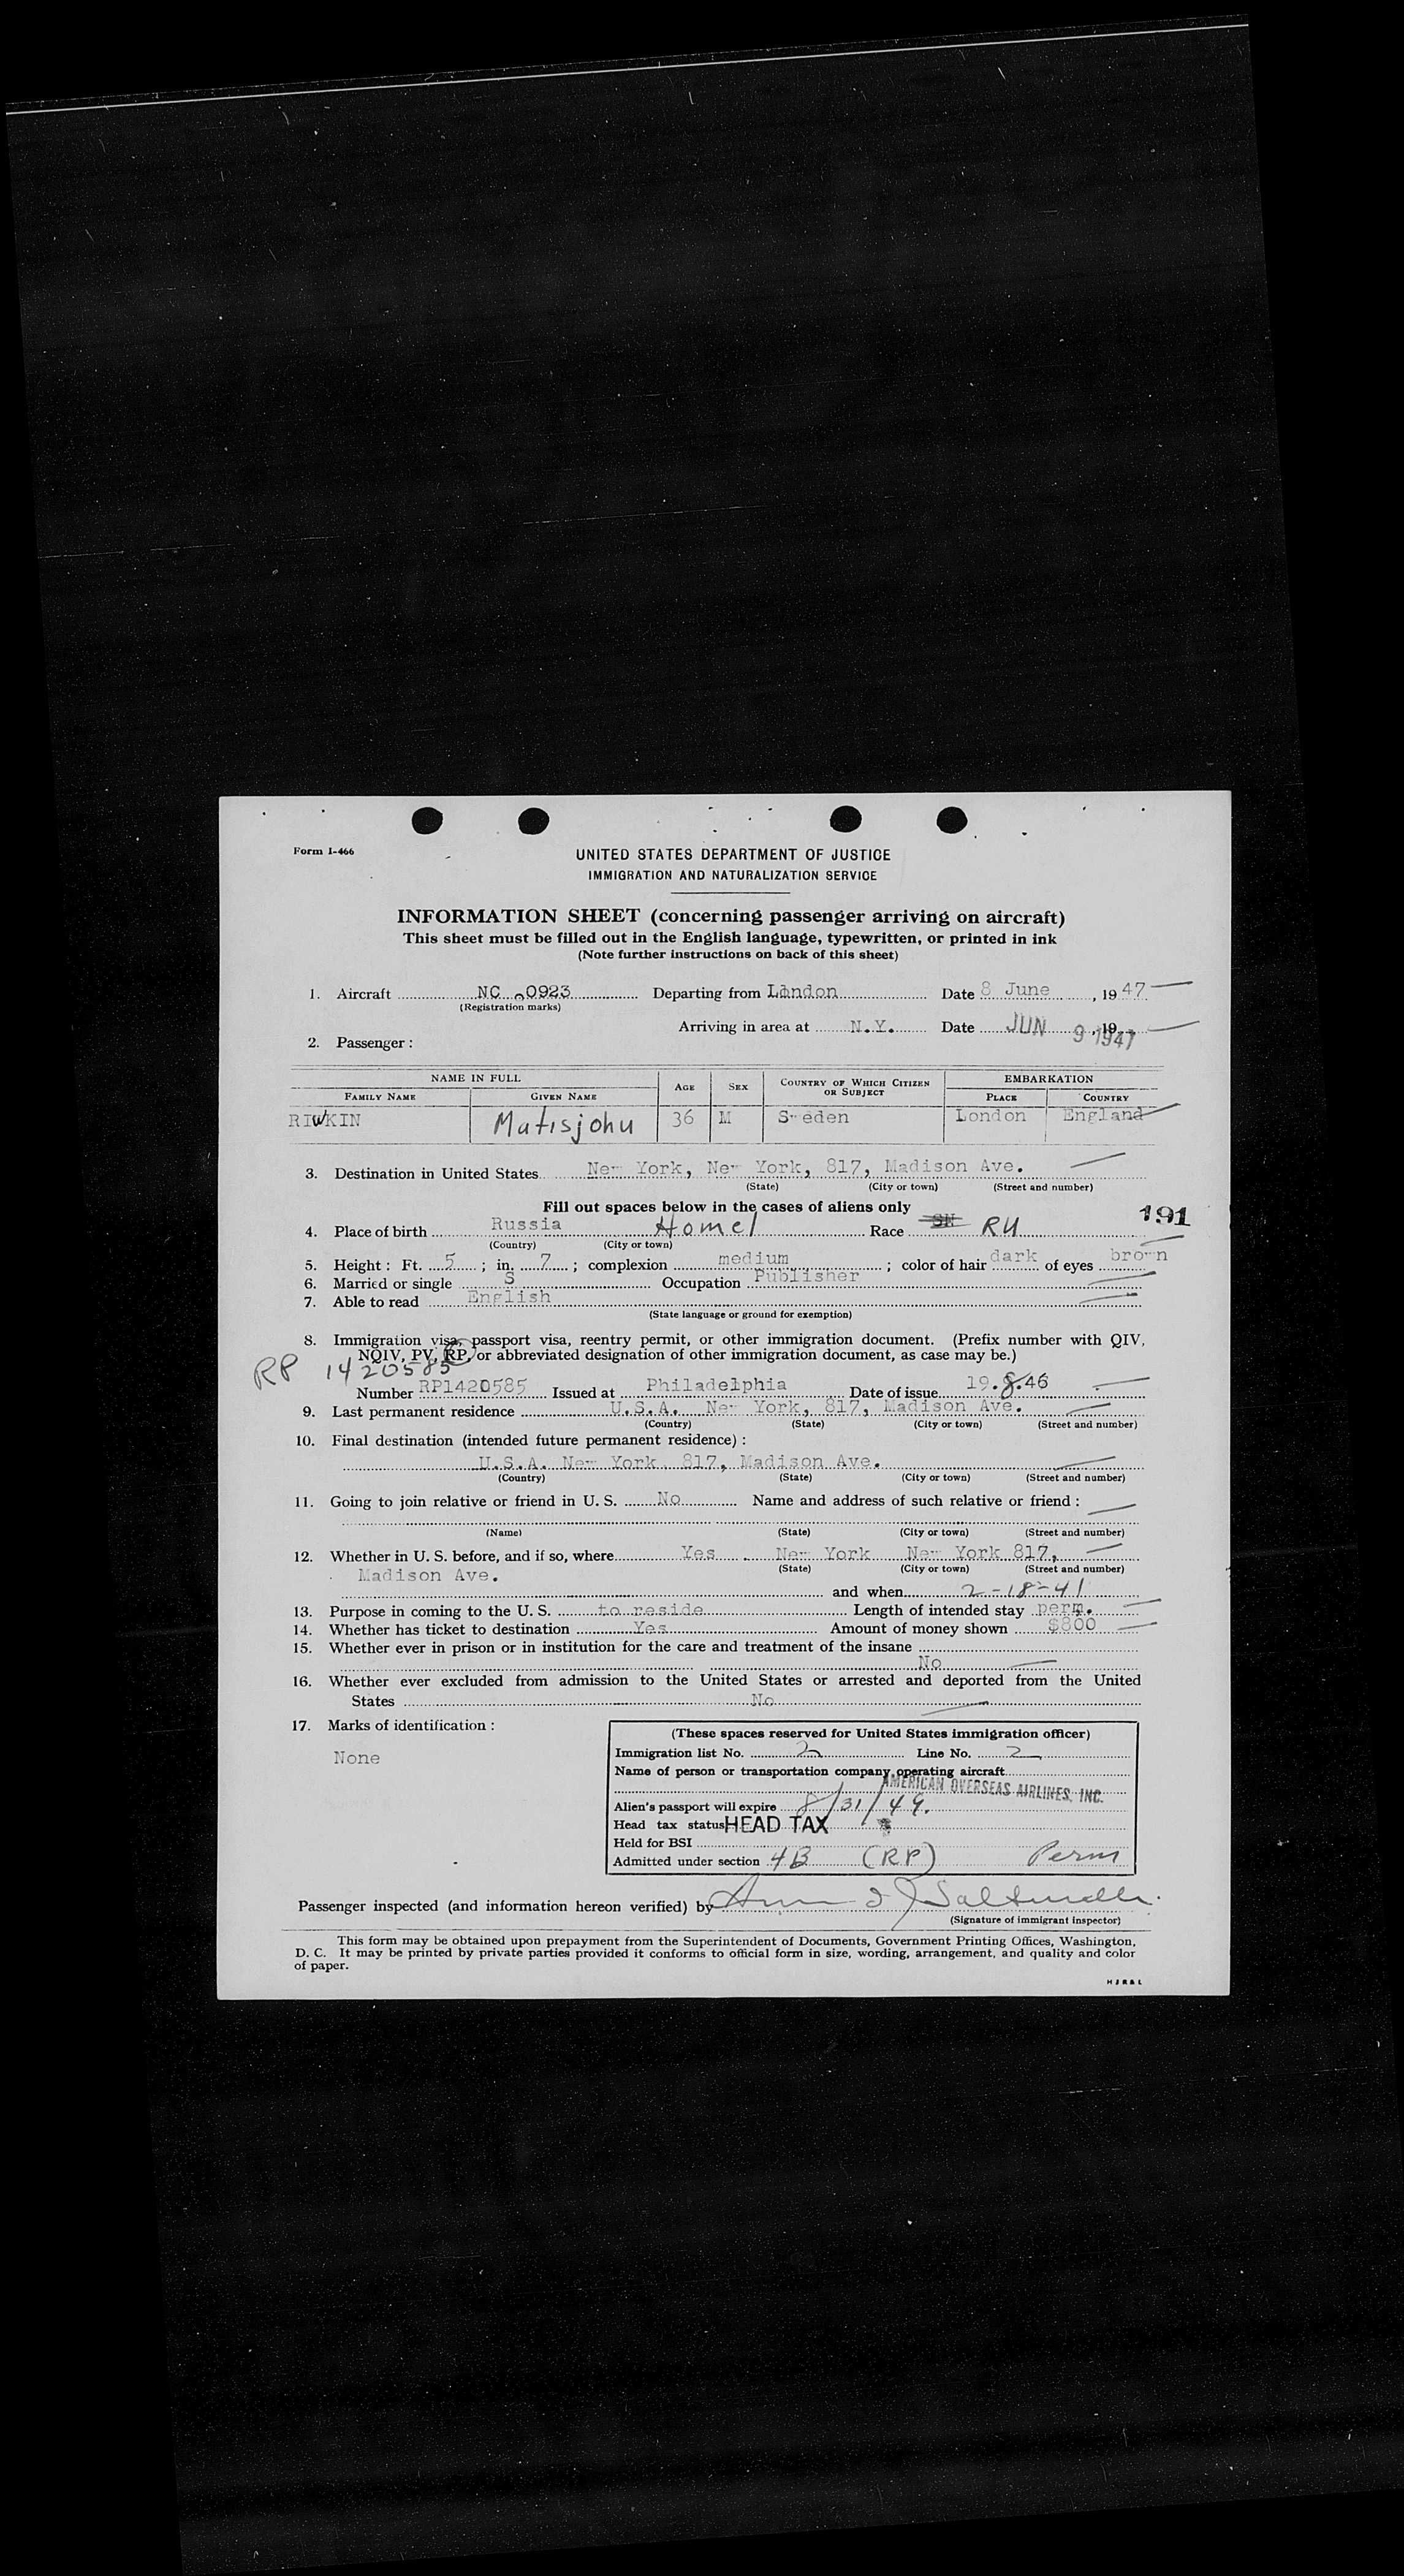 Form I-466
UNITED STATES DEPARTMENT OF JUSTICE
IMMIGRATION AND NATURALIZATION SERVICE
INFORMATION SHEET (concerning passenger arriving on aircraft)
This sheet must be filled out in the English language, typewritten, or printed in ink
(Note further instructions on back of this sheet)
1. Aircraft NC 0923 Departing from London Date 8 June, 1947
(Registration marks)
Arriving in area at N.Y. Date JUN 9 1947, 19
2. Passenger:
NAME IN FULL AGE SEX COUNTRY OF WHICH CITIZEN OR SUBJECT EMBARKATION
FAMILY NAME GIVEN NAME PLACE COUNTRY
RIWKIN Matisjohu 36 M Sweden London England
3. Destination in United States New York, New York, 817, Madison Ave.
(State) (City or town) (Street and number)
Fill out spaces below in the cases of aliens only
191
4. Place of birth Russia Homel Race RU
(Country) (City or town)
5. Height: Ft. 5; in. 7; complexion medium; color of hair dark of eyes brown
6. Married or single S Occupation Publisher
7. Able to read English
(State language or ground for exemption)
8. Immigration visa, passport visa, reentry permit, or other immigration document. (Prefix number with QIV,
NQIV, PV, RP, or abbreviated designation of other immigration document, as case may be.)
RP 1420585
Number RP1420585 Issued at Philadelphia Date of issue 19.8.46
9. Last permanent residence U.S.A. New York, 817, Madison Ave.
(Country) (State) (City or town) (Street and number)
10. Final destination (intended future permanent residence):
U.S.A. New York, 817, Madison Ave.
(Country) (State) (City or town) (Street and number)
11. Going to join relative or friend in U. S. No Name and address of such relative or friend:
(Name) (State) (City or town) (Street and number)
12. Whether in U. S. before, and if so, where Yes New York New York 817,
(State) (City or town) (Street and number)
Madison Ave.
and when 2-18-41
13. Purpose in coming to the U. S. to reside Length of intended stay perm.
14. Whether has ticket to destination Yes Amount of money shown $800
15. Whether ever in prison or in institution for the care and treatment of the insane
No
16. Whether ever excluded from admission to the United States or arrested and deported from the United
States No
17. Marks of identification:
None
(These spaces reserved for United States immigration officer)
Immigration list No. 2 Line No. 2
Name of person or transportation company operating aircraft
AMERICAN OVERSEAS AIRLINES, INC.
Alien's passport will expire 8/31/49.
Head tax status HEAD TAX
Held for BSI
Admitted under section 4B (RP) Perm
Passenger inspected (and information hereon verified) by
(Signature of immigrant inspector)
This form may be obtained upon prepayment from the Superintendent of Documents, Government Printing Offices, Washington,
D. C. It may be printed by private parties provided it conforms to official form in size, wording, arrangement, and quality and color
of paper.
HJR&L